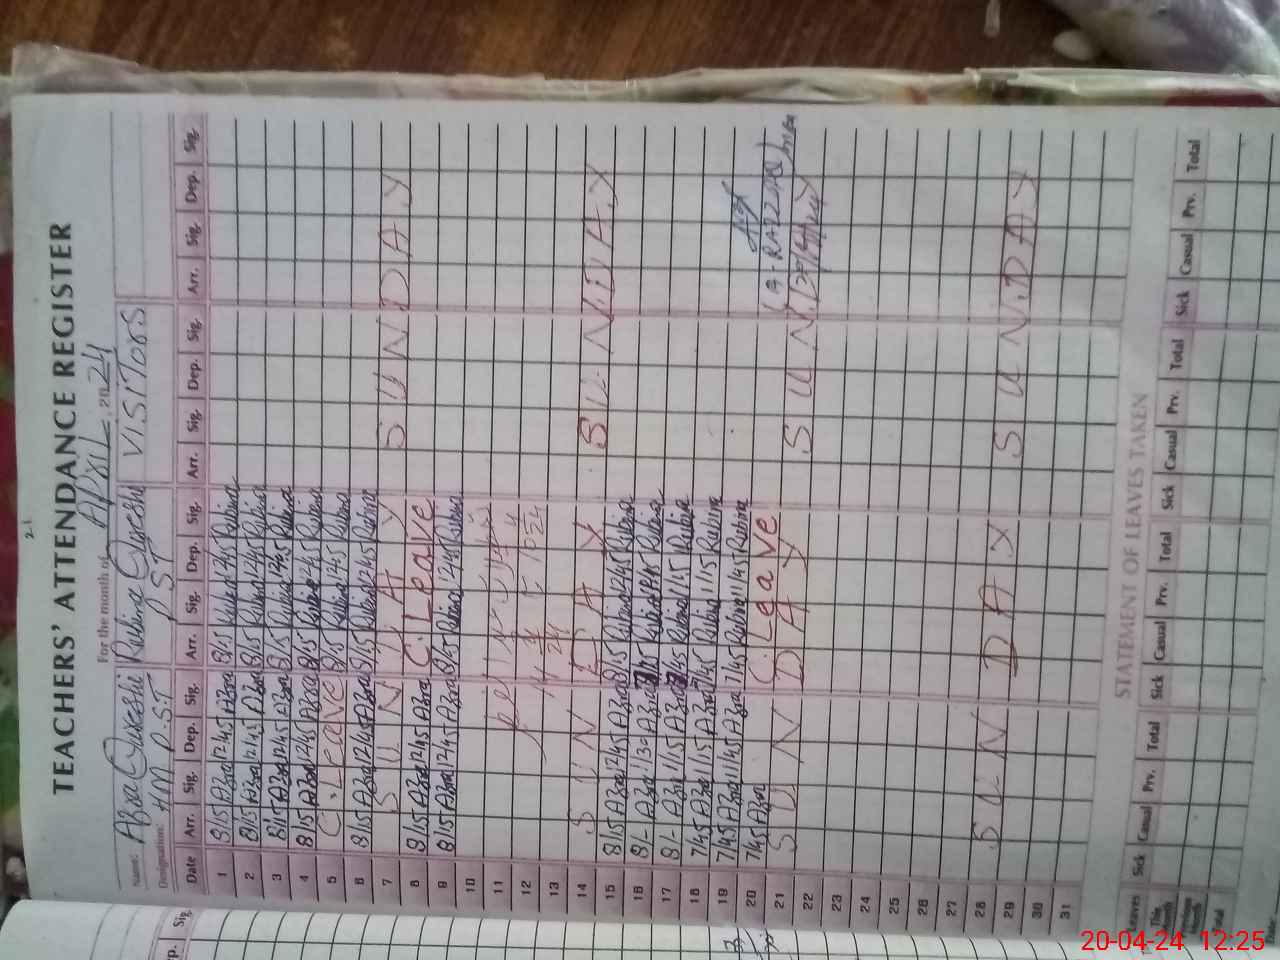 21
TEACHERS' ATTENDANCE REGISTER
For the month of APRIL, 2024
Name: Azra Qureshi Rubina Qureshi VISITORS
Designation: HM P.ST P ST
Date Arr. Sig. Dep. Sig. Arr. Sig. Dep. Sig. Arr. Sig. Dep. Sig. Arr. Sig. Dep. Sig.
1 8/15 Azra 1245 Azra 8/15 Rubina 1245 Rubina
2 8/15 Azra 12.45 Azra 8/15 Rubina 1245 Rubina
3 8/15 Azra 1245 Azra 8/15 Rubina 1245 Rubina
4 8/15 Azra 1245 Azra 8/15 Rubina 1245 Rubina
5 C. Leave 8/15 Rubina 1245 Rubina
6 8/15 Azra 1245 Azra 8/15 Rubina 1245 Rubina
7 S U N D A Y S U N D A Y
8 8/15 Azra 1245 Azra C. Leave
9 8/15 Azra 1245 Azra 8/15 Rubina 1245 Rubina
10
11
12
13
14 S U N D A Y S U N D A Y
15 8/15 Azra 1245 Azra 8/15 Rubina 1245 Rubina
16 8/- Azra 1/30 Azra Rubina Rubina
17 8/- Azra 11/15 Azra 7/45 Rubina 11/45 Rubina
18 7/45 Azra 11/15 Azra 7/45 Rubina 1115 Rubina
19 7/45 Azra 11/45 Azra 7/45 Rubina 11/45 Rubina
20 7/45 Azra C. Leave
21 S U N D A Y S U N D A Y
22
23
24
25
26
27
28 S U N D A Y S U N D A Y
29
30
31
STATEMENT OF LEAVES TAKEN
Leaves Sick Casual Prv. Total Sick Casual Prv. Total Sick Casual Prv. Total Sick Casual Prv. Total
This Month
Previous Month
Total
20-04-24 12:25